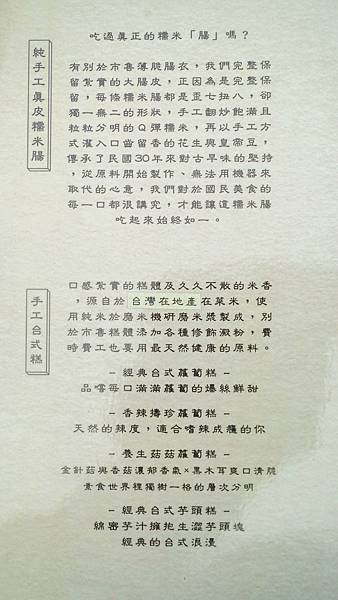 吃過真正的糯米「腸」嗎？
純手工真皮糯米腸
有別於市售薄脆腸衣，我們完整保
留紮實的大腸皮，正因為是完整保
留，每條糯米腸都是歪七扭八，卻
獨一無二的形狀，手工翻炒飽滿且
粒粒分明的Q彈糯米，再以手工方
式灌入口齒留香的花生與皇帝豆，
傳承了民國30年來對古早味的堅持
，從原料開始製作、無法用機器來
取代的心意，我們對於國民美食的
每一口都很講究，才能讓這糯米腸
吃起來始終如一。
手工台式糕
口感紮實的糕體及久久不散的米香
，源自於台灣在地產在萊米，使
用純米於磨米機研磨米漿製成，別
於市售糕體添加各種修飾澱粉，費
時費工也要用最天然健康的原料。
– 經典台式蘿蔔糕 –
品嚐每口滿滿蘿蔔的爆絲鮮甜
– 香辣擣珍蘿蔔糕 –
天然的辣度，適合嗜辣成癮的你
– 養生菇菇蘿蔔糕 –
金針菇與香菇濃郁香氣×黑木耳爽口清脆
素食世界裡獨樹一格的層次分明
– 經典台式芋頭糕 –
綿密芋汁擁抱生澀芋頭塊
經典的台式浪漫